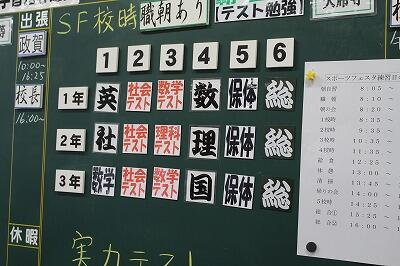 出張
政賀
10:00〜
16:25
校長
16:00〜
休暇
SF校時
職朝あり
【テスト勉強】
1 2 3 4 5 6
1年 英 社会テスト 数学テスト 数 保体 総
2年 社 社会テスト 理科テスト 理 保体 総
3年 数学 社会テスト 数学テスト 国 保体 総
実力テスト
スポーツフェスタ練習日
朝自習 8:05 〜
職朝 8:10 〜
朝の会 8:20 〜
1校時 8:35 〜
2校時 9:35 〜
3校時 10:35 〜
4校時 11:35 〜
給食 12:25 〜
休憩 13:00 〜
清掃 13:45 〜
帰りの会 14:00 〜
5校時 14:25 〜
総合① 15:25 〜
総合② 16:00 〜